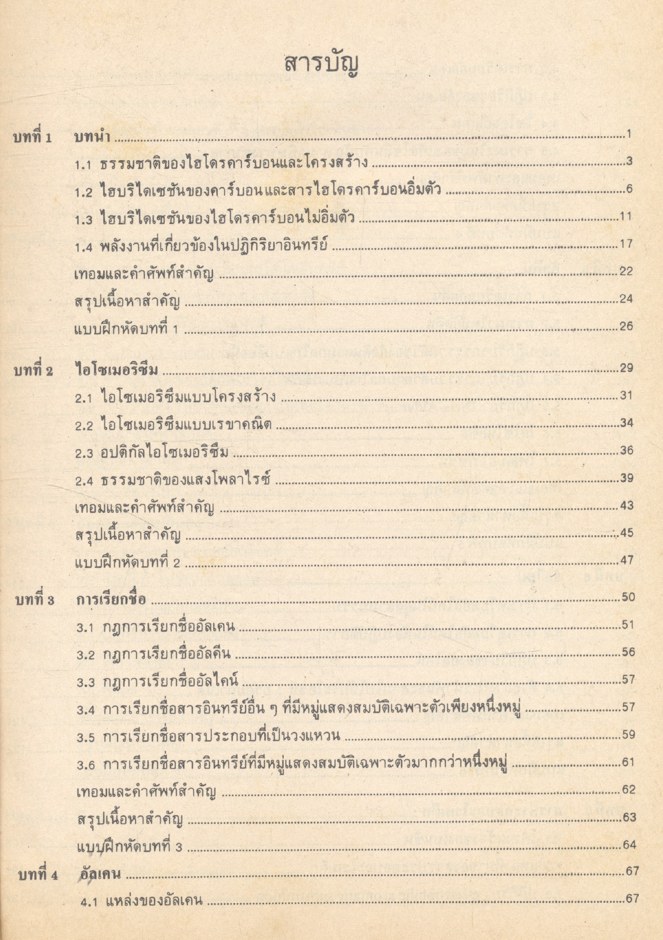 สารบัญ
บทที่ 1 บทนำ ........ 1
1.1 ธรรมชาติของไฮโดรคาร์บอนและโครงสร้าง ........ 3
1.2 ไฮบริไดเซชันของคาร์บอนและสารไฮโดรคาร์บอนอิ่มตัว ........ 6
1.3 ไฮบริไดเซชันของไฮโดรคาร์บอนไม่อิ่มตัว ........ 11
1.4 พลังงานที่เกี่ยวข้องในปฏิกิริยาอินทรีย์ ........ 17
เทอมและคำศัพท์สำคัญ ........ 22
สรุปเนื้อหาสำคัญ ........ 24
แบบฝึกหัดบทที่ 1 ........ 26
บทที่ 2 ไอโซเมอริซึม ........ 29
2.1 ไอโซเมอริซึมแบบโครงสร้าง ........ 31
2.2 ไอโซเมอริซึมแบบเรขาคณิต ........ 34
2.3 อปติกัลไอโซเมอริซึม ........ 36
2.4 ธรรมชาติของแสงโพลาไรซ์ ........ 39
เทอมและคำศัพท์สำคัญ ........ 43
สรุปเนื้อหาสำคัญ ........ 45
แบบฝึกหัดบทที่ 2 ........ 47
บทที่ 3 การเรียกชื่อ ........ 50
3.1 กฎการเรียกชื่ออัลเคน ........ 51
3.2 กฎการเรียกชื่ออัลคีน ........ 56
3.3 กฎการเรียกชื่ออัลไคน์ ........ 57
3.4 การเรียกชื่อสารอินทรีย์อื่น ๆ ที่มีหมู่แสดงสมบัติเฉพาะตัวเพียงหนึ่งหมู่ ........ 57
3.5 การเรียกชื่อสารประกอบที่เป็นวงแหวน ........ 59
3.6 การเรียกชื่อสารอินทรีย์ที่มีหมู่แสดงสมบัติเฉพาะตัวมากกว่าหนึ่งหมู่ ........ 61
เทอมและคำศัพท์สำคัญ ........ 62
สรุปเนื้อหาสำคัญ ........ 63
แบบฝึกหัดบทที่ 3 ........ 64
บทที่ 4 อัลเคน ........ 67
4.1 แหล่งของอัลเคน ........ 67